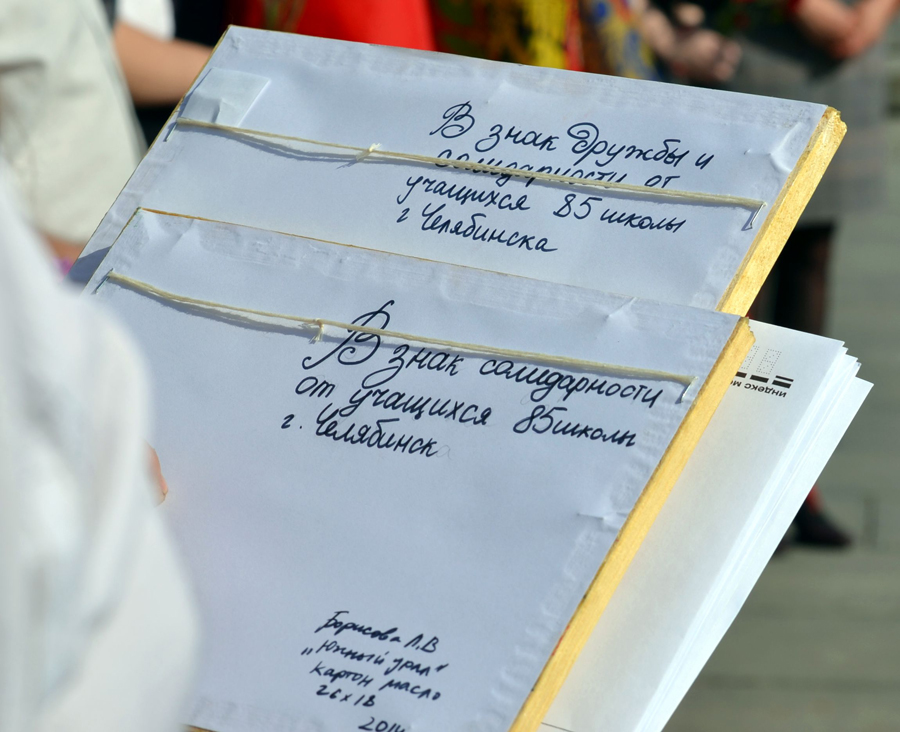 В знак дружбы и
солидарности от
учащихся 85 школы
г Челябинска
В знак солидарности
от учащихся 85 школы
г. Челябинск
Борисова Л.В
"Южный урал"
картон масло
26х18
2014
индекс